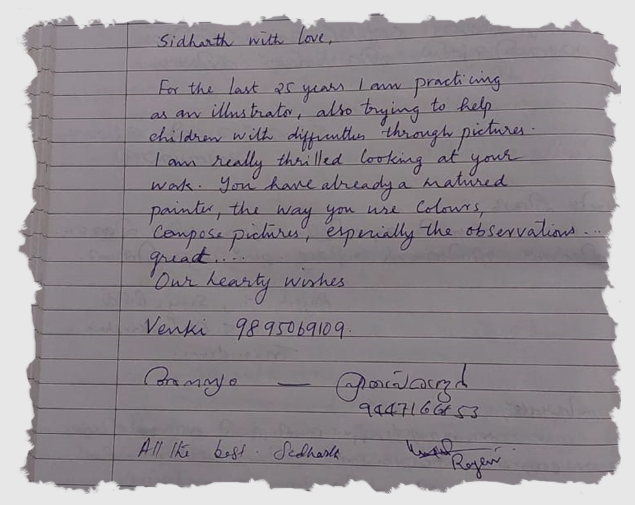 Sidharth with love,
For the last 25 years I am practicing
as an illustrator, also trying to help
children with difficulties through pictures.
I am really thrilled looking at your
work. You have already a matured
painter, the way you use Colours,
Compose pictures, especially the observations...
great....
Our hearty wishes
Venki 9895069109.
—
9447166653
All the best.
Rajeev